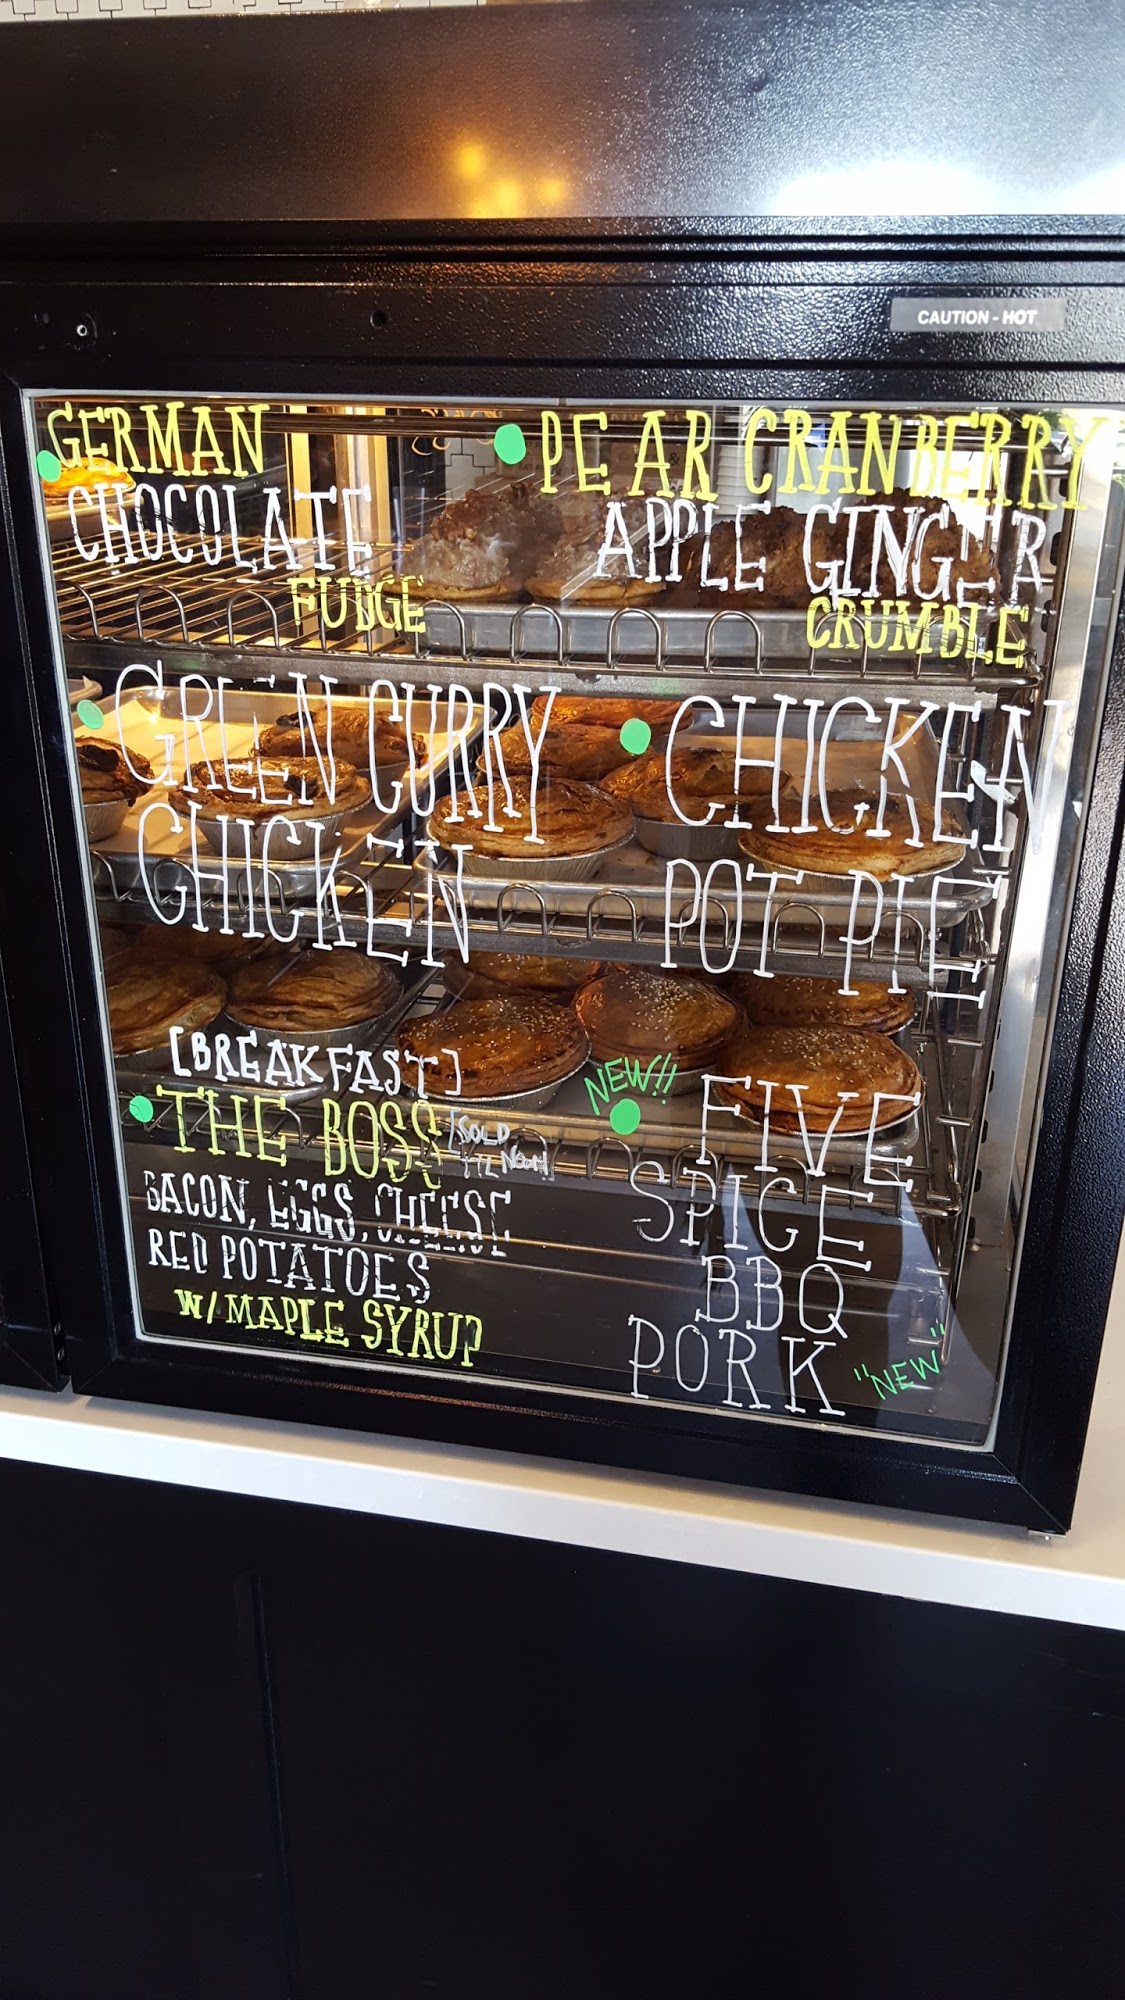 CAUTION - HOT
GERMAN
CHOCOLATE
FUDGE
PEAR CRANBERRY
APPLE GINGER
CRUMBLE
GREEN CURRY
CHICKEN
CHICKEN
POT PIE
[BREAKFAST]
THE BOSS
[SOLD
TIL NOON]
BACON, EGGS, CHEESE
RED POTATOES
W/ MAPLE SYRUP
NEW!!
FIVE
SPICE
BBQ
PORK
"NEW"